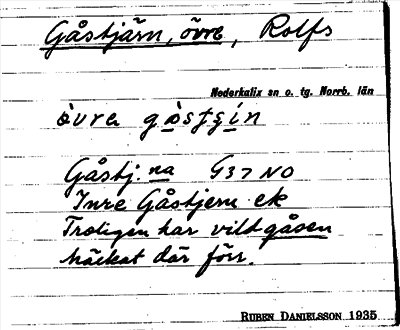 Gåstjärn, övre, Rolfs
Nederkalix sn o. tg. Norrb. län
òvra gòsţşín
Gåstj. na G37 NO
Inre Gåstjern ek
Troligen har vildgåsen
häckat där förr.
RUBEN DANIELSSON 1935